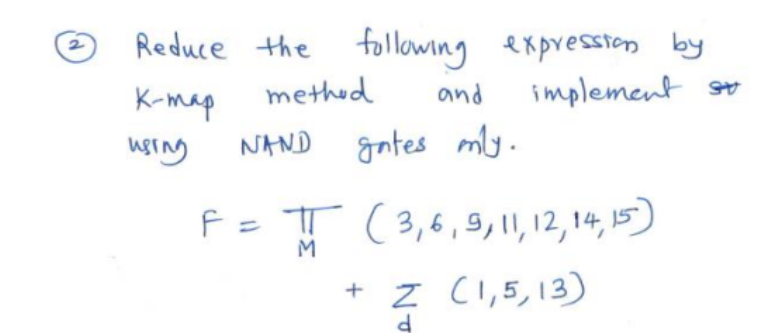 ② Reduce the following expression by
K-map method and implement
using NAND gates only.
F = π ( 3,6,9,11,12,14,15)
M
+ Σ (1,5,13)
d